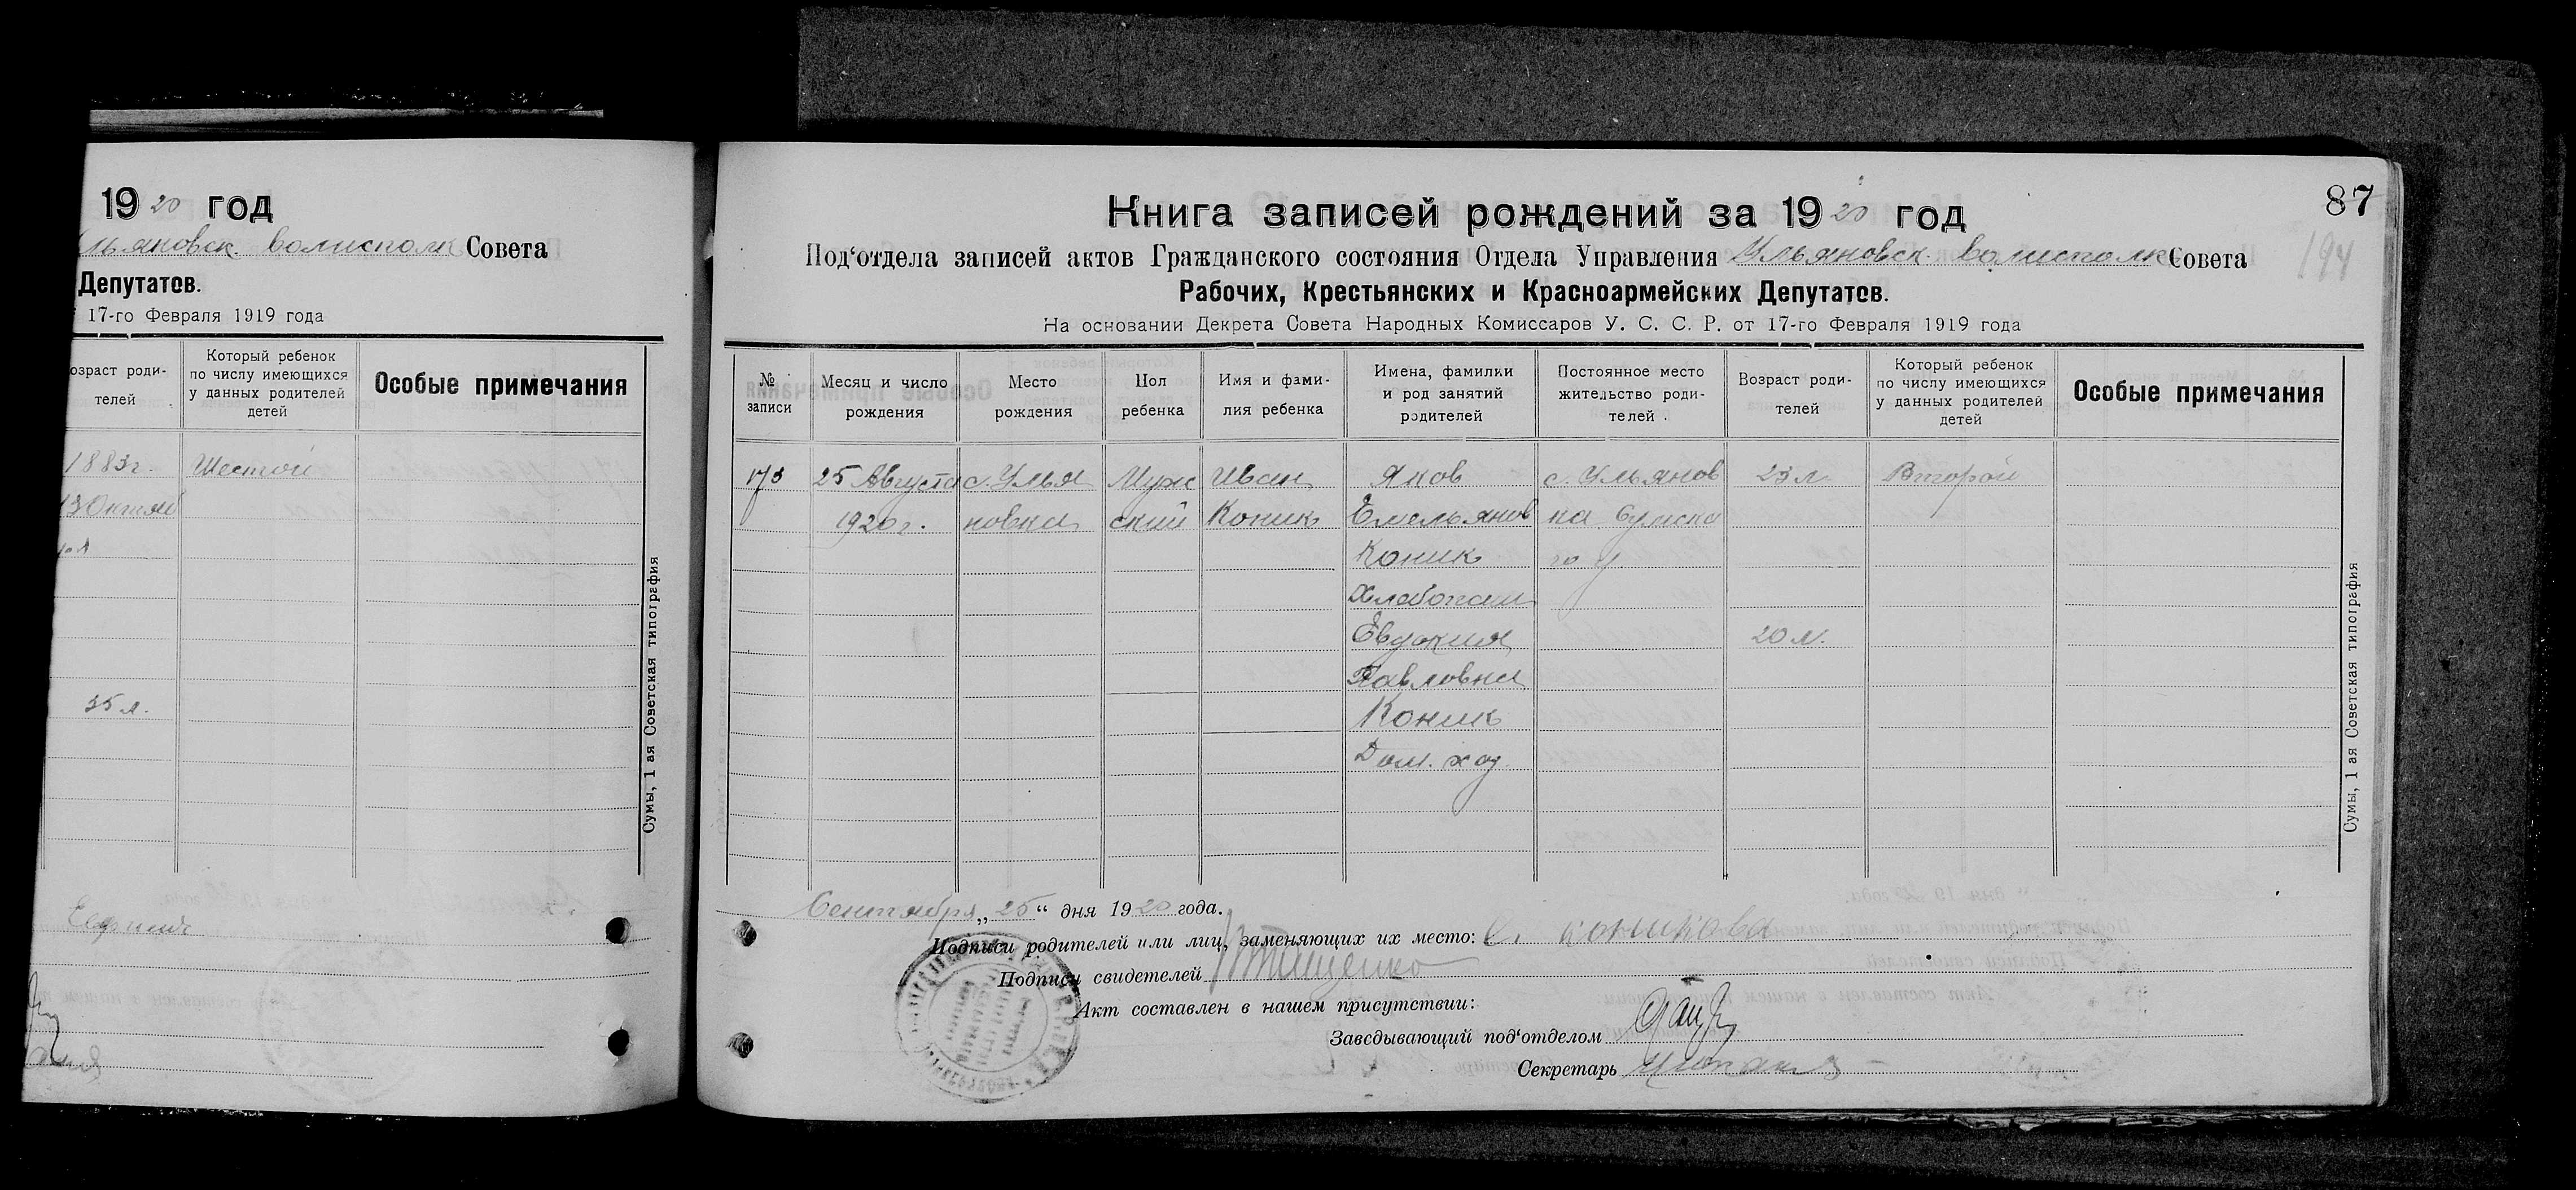 1920 год
льяновск. волисполк Совета
Депутатов.
17-го Февраля 1919 года
озраст роди-
телей
Который ребенок
по числу имеющихся
у данных родителей
детей
Особые примечания
1883г. Шестой
13 Октяб
35 л.
Сумы, 1 ая Советская типография
87
194
Книга записей рождений за 1920 год
Под‘отдела записей актов Гражданского состояния Отдела Управления Ульяновск. волисполк Совета
Рабочих, Крестьянских и Красноармейских Депутатов.
На основании Декрета Совета Народных Комиссаров У. С. С. Р. от 17-го Февраля 1919 года
№
записи
Месяц и число
рождения
Место
рождения
Пол
ребенка
Имя и фами-
лия ребенка
Имена, фамилии
и род занятий
родителей
Постоянное место
жительство роди-
телей .
Возраст роди-
телей
Который ребенок
по числу имеющихся
у данных родителей
детей
Особые примечания
173 25 Августа с. Улья Муж Иван Яков с. Ульянов 23 л. Второй
1920 г. новка ский Коник Емельянов ка Сумско
Коник го у
Хлебопаш
Евдокия 20 л.
Павловна
Коник
Дом. хоз.
Сумы, 1 ая Советская типография
Сентября „25“ дня 1920 года.
Подписи родителей или лиц, заменяющих их место: Е. Коникова
Подписи свидетелей
Акт составлен в нашем присутствии:
Заведывающий под‘отделом
Секретарь